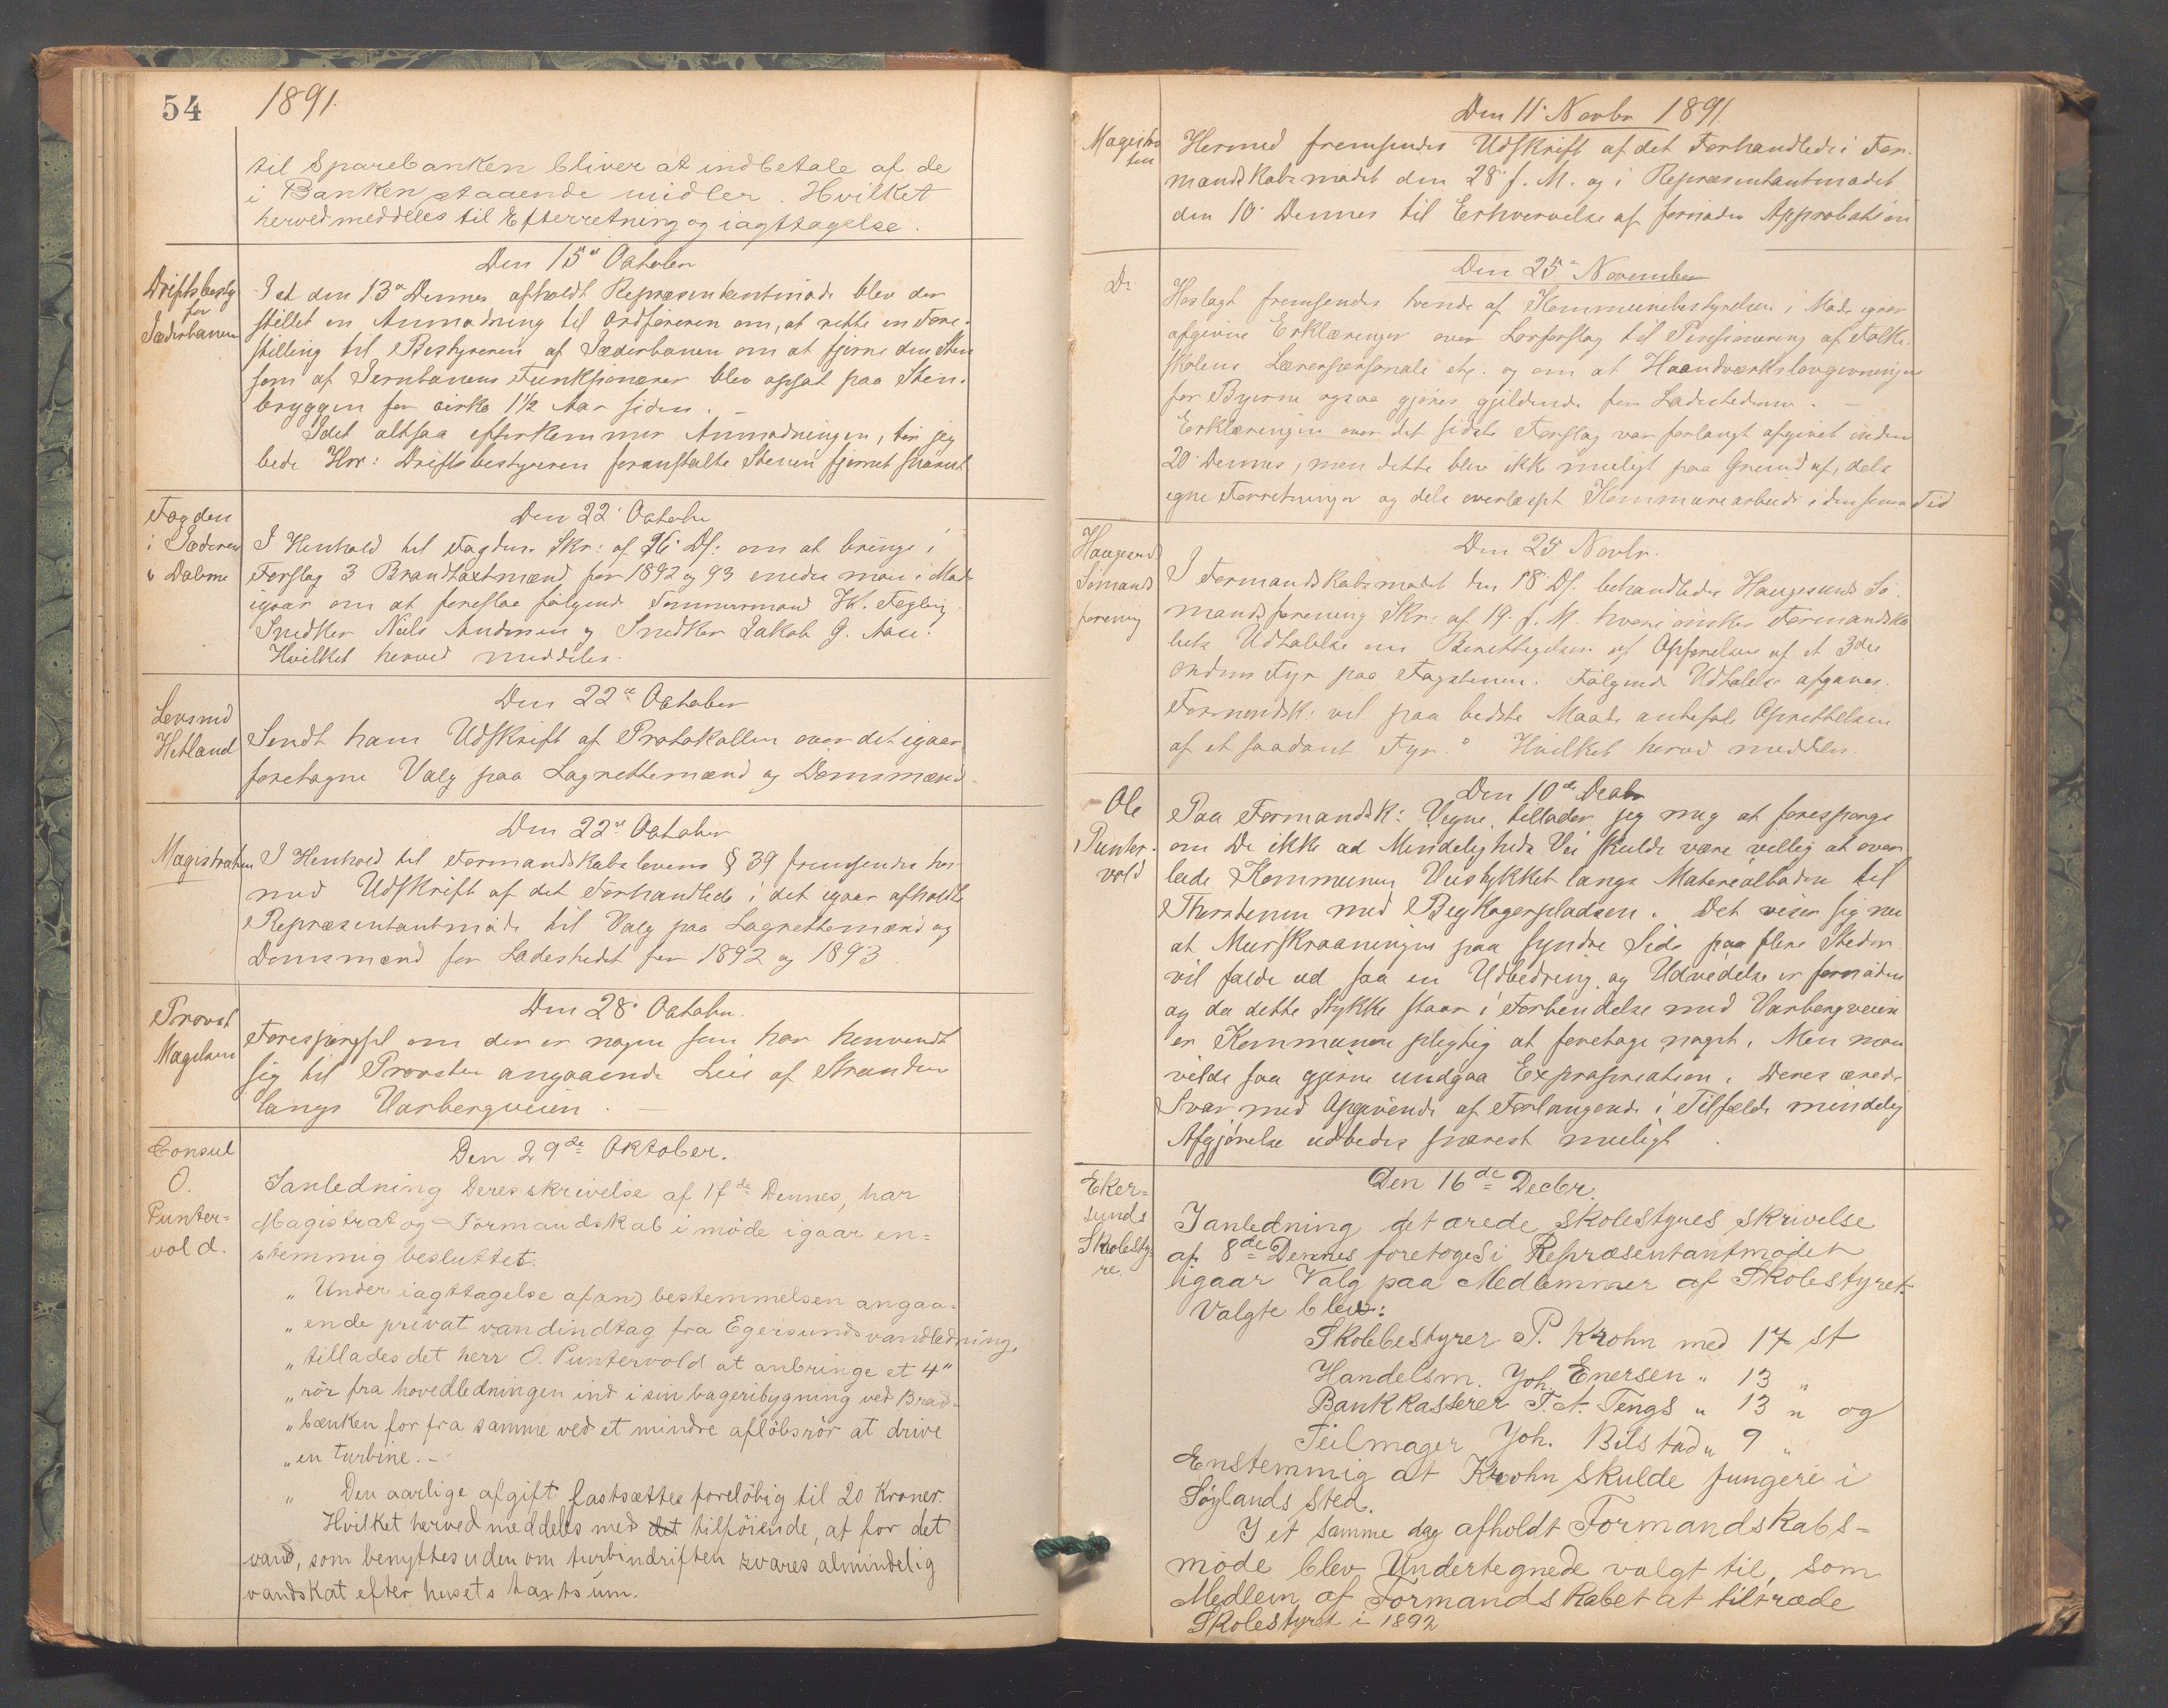 54
1891.
til Sparebanken bliver at indbetale af de
i Banken staaende midler. Hvilket
herved meddeles til Efterretning og iagttagelse.
Den 15de October
Driftsbesty.
for
Jæderbanen
I et den 13de Dennes afholdt Repræsentantmøde blev der
stillet en Anmodning til Ordføreren om, at rette en Fore-
stilling til Bestyreren af Jæderbanen om at fjerne den Sten
som af Jernbanens Funksjonærer blev opsat paa Sten-
bryggen for cirka 1½ Aar siden. –
Idet altsaa efterkommer Anmodningen, tør jeg
bede Hrr: Driftsbestyreren foranstalte Stenen fjernet snarest
Fogden
i Jæderen
& Dalerne
Den 22. Octobr
I Henhold til Fogdens Skr: af 16. Ds: om at bringe i
Forslag 3 Brandtaxtmænd for 1892 og 93 enedes man i Møde
igaar om at foreslaa følgende Tømmermand
Snedker Niels Andersen og Snedker Jakob G. Aase.
Hvilket herved meddeles.
Lensmd
Hetland
Den 22de October
Sendt ham Udskrift af Protokollen over det igaar
foretagne Valg paa Lagrettemænd og Domsmænd.
Magistraten
Den 22de October
I Henhold til Formandskabslovens § 39 fremsendes her-
med Udskrift af det Forhandlede i det igaar afholdte
Repræsentantmøde til Valg paa Lagrettemænd og
Domsmænd for Ladestedet for 1892 og 1893.
Provst
Magelssen
Den 28. Octobr.
Forespørgsel om der er nogen som har henvendt
sig til Provsten angaaende Leie af Stranden
langs Varbergveien. –
Consul
O.
Punter=
vold.
Den 29de Oktober.
Ianledning Deres skrivelse af 17de Dennes, har
Magistrat og Formandskab i møde igaar en=
stemmig besluttet:
„ Under iagttagelse af (an) bestemmelsen angaa=
„ ende privat vandindtag fra Egersunds vandledning,
„ tillades det herr O. Puntervold at anbringe et 4"
„ rör fra hovedledningen ind i sin bageribygning ved Brad-
„ bænken for fra samme ved et mindre aflöbsrör at drive
„ en turbine. –
„ Den aarlige afgift fastsættes foreløbig til 20 Kroner.
Hvilket herved meddeles med det tilföiende, at for det
vand, som benyttes uden om turbindriften svares almindelig
vandskat efter husets taxtsum.
Den 11. Novbr 1891.
Magistra
ten
Hermed fremsendes Udskrift af det Forhandlede i For-
mandskabsmødet den 28. f. M. og i Repræsentantmødet
den 10. Dennes til Erhvervelse af fornøden Approbation
Do
Den 25. November
Hoslagt fremsendes tvende af Kommunebestyrelsen i Møde igaar
afgivne Erklæringer over Lovforslag til Pensionering af Folke-
skolens Lærerpersonale etc. og om at Haandværkslovgivningen
for Byerne ogsaa gjøres gjældende for Ladestederne. –
Erklæringen over det sidste Forslag var forlangt afgivet inden
20. Dennes, men dette blev ikke muligt paa Grund af, dels
egne Forretninger og dels overlæsset Kommunearbeide i den senere Tid
Haugesunds
Sømands
forening
Den 25 Novbr.
I Formandskabsmødet den 18. Ds. behandledes Haugesunds Sø-
mandsforening Skr: af 19. f. M. hvori ønskes Formandska-
bets Udtalelse om Berettigelsen af Opførelsen af et 3die
Ordens Fyr paa Fogstenen. Følgende Udtalelse afgaves.
Formandsk: vil paa bedste Maade anbefale Oprettelsen
af et saadant Fyr." Hvilket herved meddeles.
Ole
Punter-
vold
Den 10de Decbr
Paa Formandsk: Vegne tillader jeg mig at forespørge
om De ikke ad Mindelighedens Vei skulde være villig at over-
lade Kommunen Veistykket langs Materialboden til
Thorstenen med Begkogerpladsen. Det viser sig nu
at Murskraaningen paa syndre Side paa flere Steder
vil falde ud saa en Udbedring og Udvidelse er fornøden
og da dette Stykke staar i Forbindelse med Varbergveien
er Kommunen pligtig at foretage noget. Men man
vilde saa gjerne undgaa Expropriation. Deres ærede
Svar med Opgivende af Forlangende i Tilfælde mindelig
Afgjørelse udbedes snarest muligt.
Eker=
sunds
Skolesty-
re.
Den 16de Decbr.
I anledning det ærede skolestyres skrivelse
af 8de Dennes foretoges i Repræsentantmødet
igaar Valg paa Medlemmer af Skolestyret.
Valgte blev:
Skolebestyrer P. Krohn med 17 st
Handelsm. Joh. Enersen „ 13 „
Bankkasserer F. A. Tengs „ 13 „ og
Seilmager Joh. Bilstad „ 9 „
Enstemmig at Krohn skulde fungere i
Søylands sted.
I et samme dag afholdt Formandskabs=
møde blev Undertegnede valgt til, som
Medlem af Formandskabet at tiltræde
Skolestyret i 1892